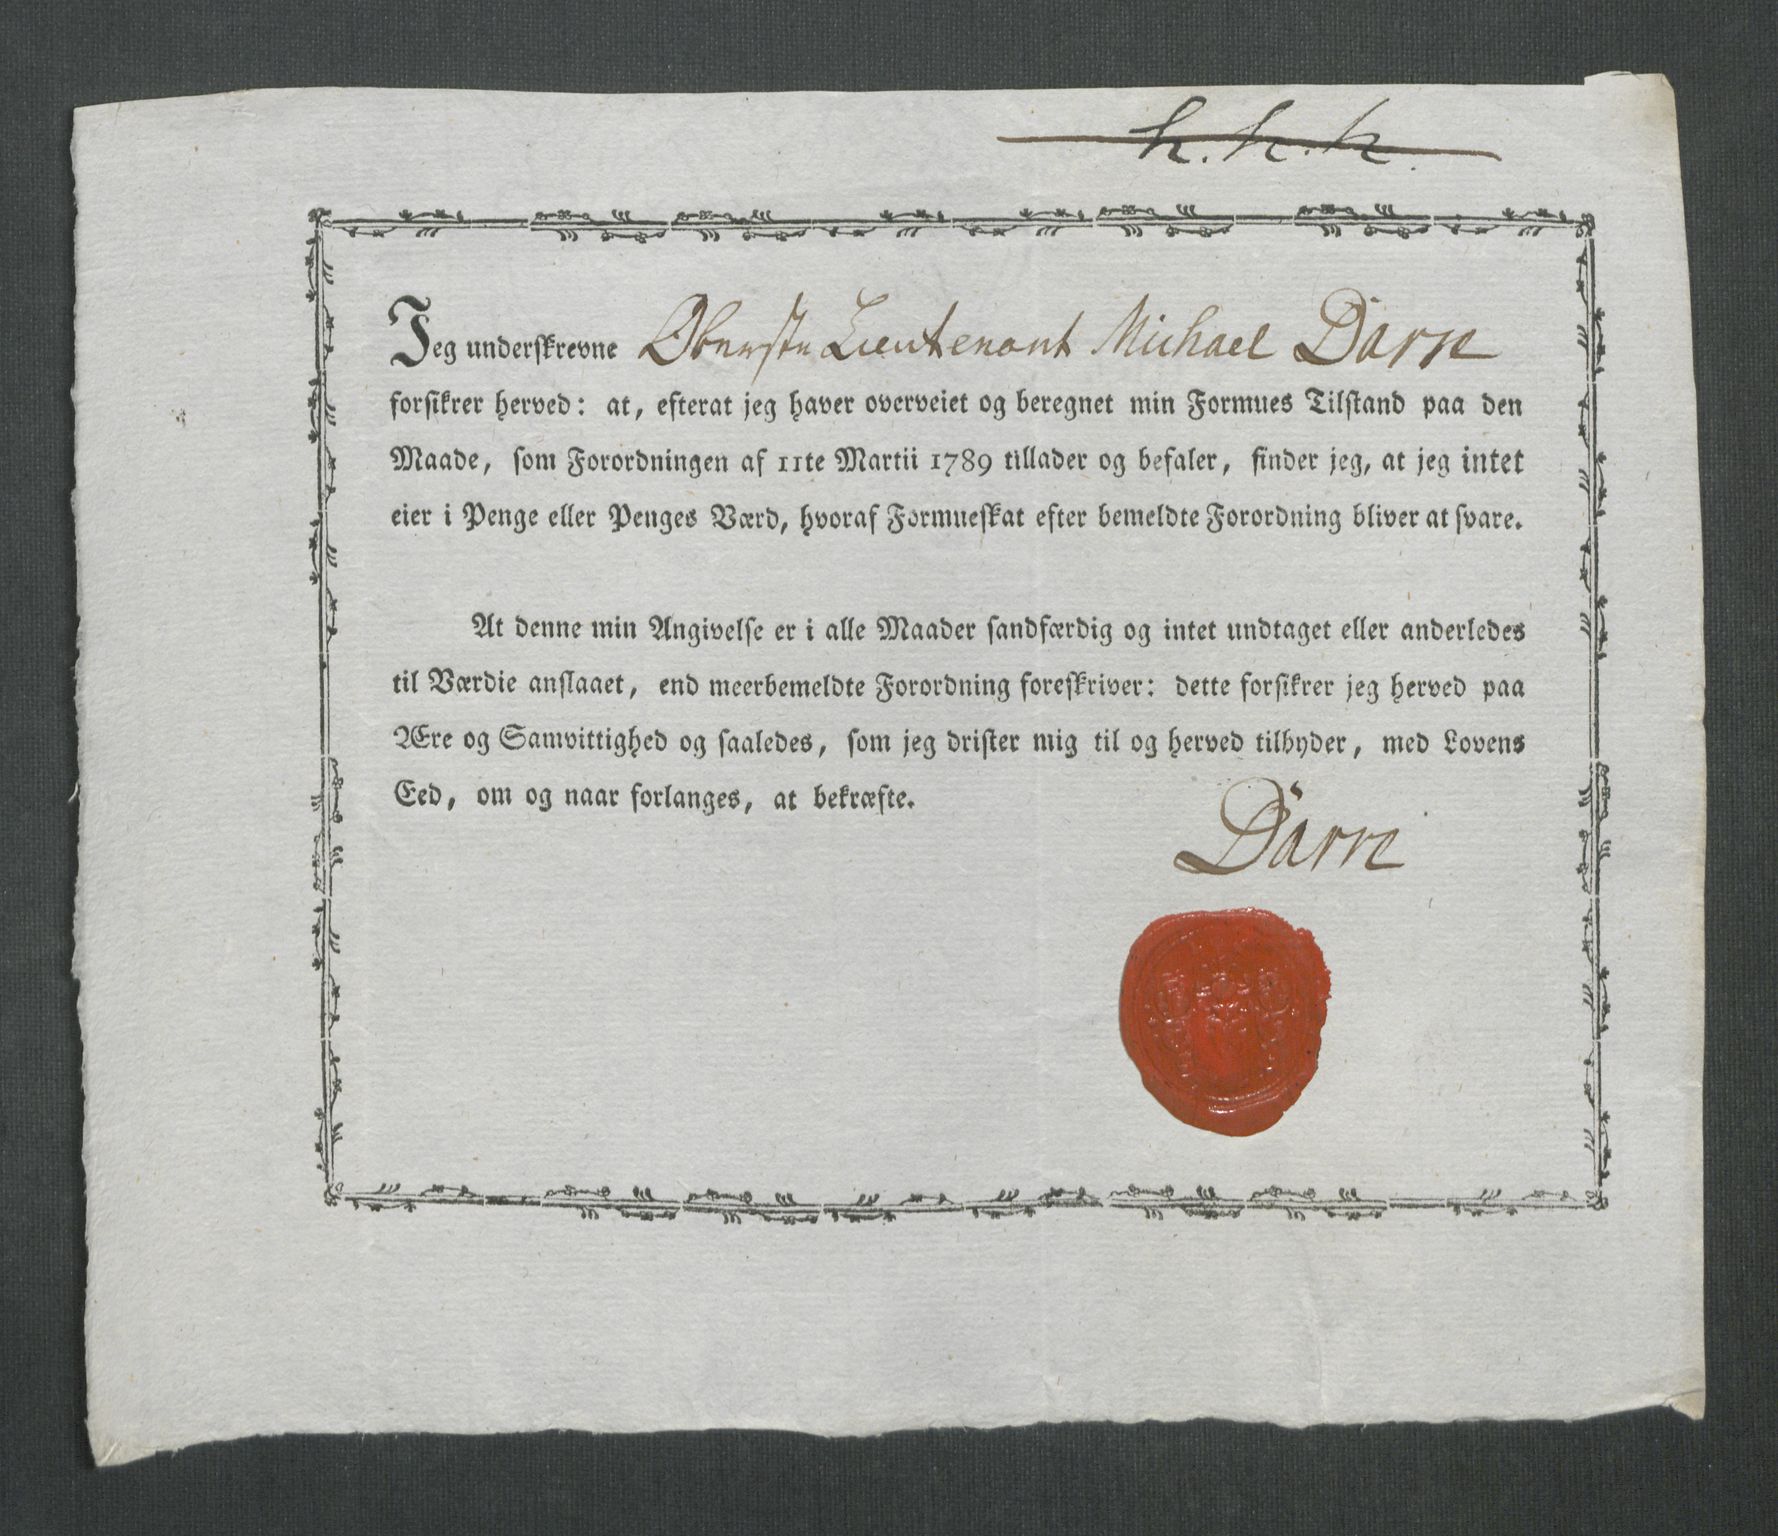 h. h. h.
Jeg underskrevne Oberste Lieutenant Michael Darre
forsikrer herved: at, efterat jeg haver overveiet og beregnet min Formues Tilstand paa den
Maade, som Forordningen af 11te Martii 1789 tillader og befaler, finder jeg, at jeg intet
eier i Penge eller Penges Værd, hvoraf Formueskat efter bemeldte Forordning bliver at svare.
At denne min Angivelse er i alle Maader sandfærdig og intet undtaget eller anderledes
til Værdie anslaaet, end meerbemeldte Forordning foreskriver: dette forsikrer jeg herved paa
Ære og Samvittighed og saaledes, som jeg drister mig til og herved tilbyder, med Lovens
Eed, om og naar forlanges, at bekræfte.
Darre